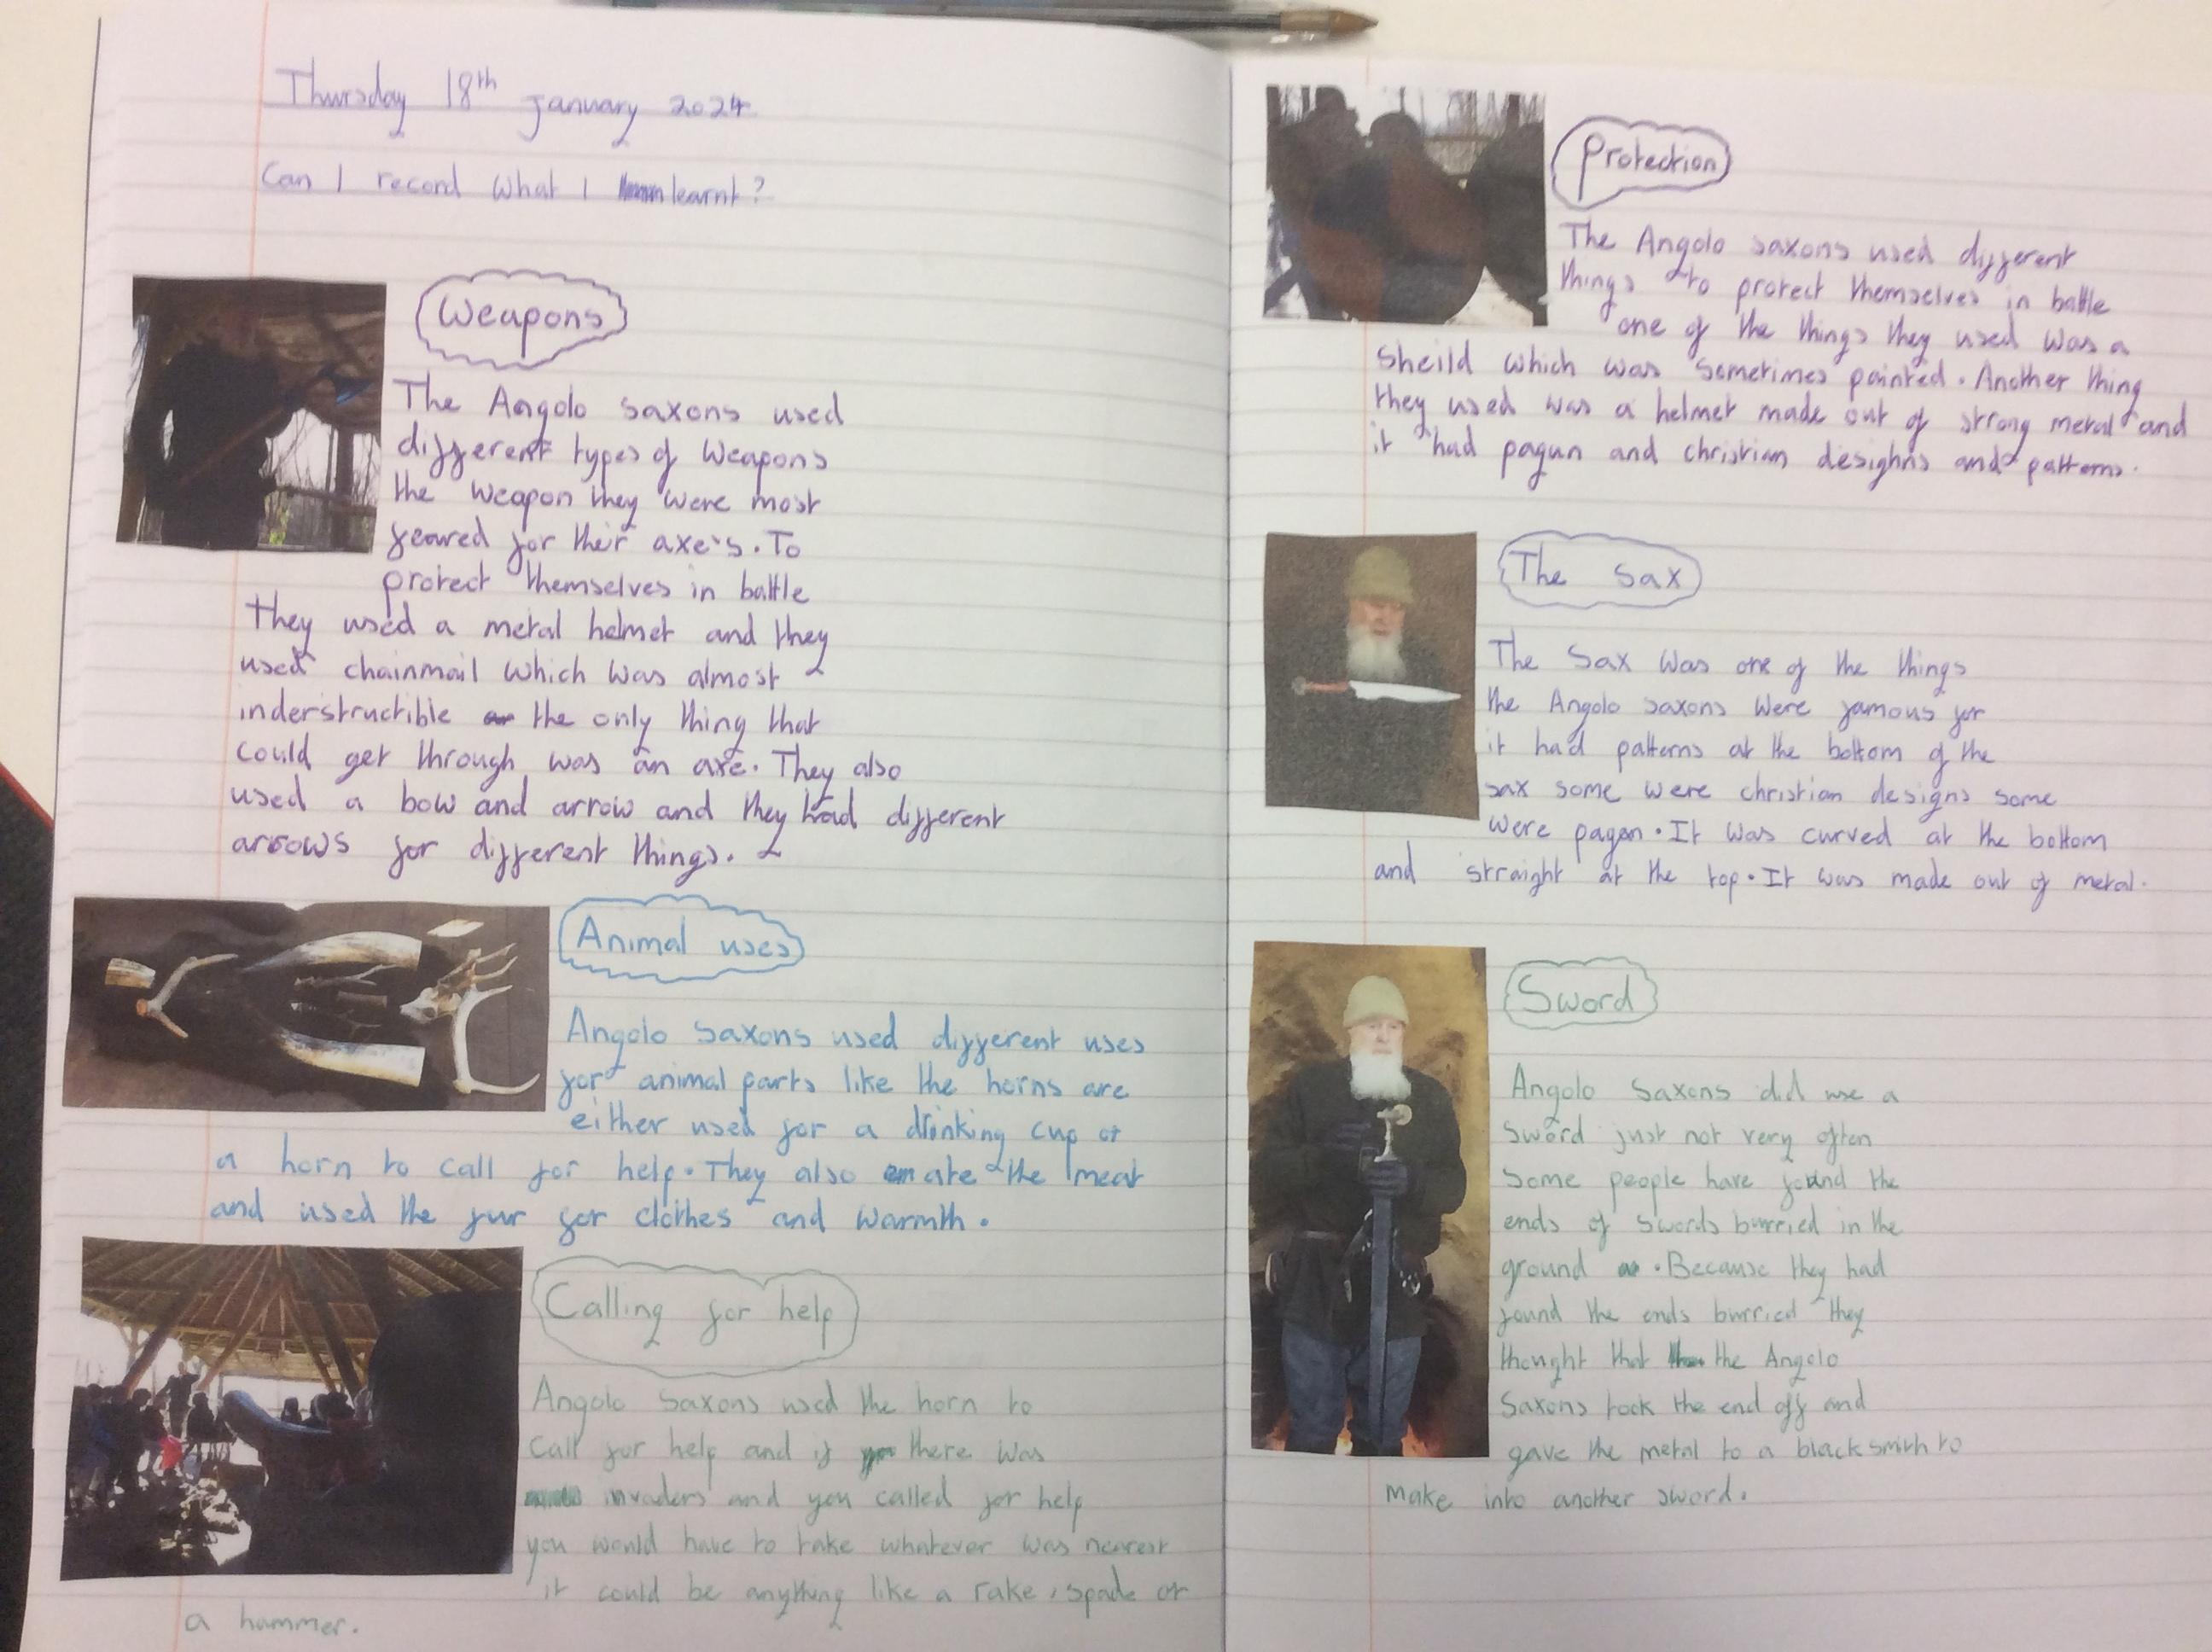 Thursday 18th January 2024
Can I record what I learnt?
Weapons
The Angolo saxons used
different types of weapons
the weapon they were most
feared for their axe's. To
protect themselves in battle
They used a metal helmet and they
used chainmail which was almost
inderstructible the only thing that
could get through was an axe. They also
used a bow and arrow and they had different
arrows for different things.
Animal uses
Angolo saxons used different uses
for animal parts like the horns are
either used for a drinking cup or
a horn to call for help. They also ate the meat
and used the fur for clothes and warmth.
Calling for help
Angolo saxons used the horn to
call for help and if there was
invaders and you called for help
you would have to take whatever was nearest
it could be anything like a rake, spade or
a hammer.
Protection
The Angolo saxons used different
things to protect themselves in battle
one of the things they used was a
sheild which was sometimes painted. Another thing
they used was a helmet made out of strong metal and
it had pagan and christian desighns and patterns.
The sax
The sax was one of the things
the Angolo saxons were famous for
it had patterns at the bottom of the
sax some were christian designs some
were pagan. It was curved at the bottom
and straight at the top. It was made out of metal.
Sword
Angolo saxons did use a
sword just not very often
some people have found the
ends of swords burried in the
ground. Because they had
found the ends burried they
thought that the Angolo
saxons took the end off and
gave the metal to a blacksmith to
make into another sword.